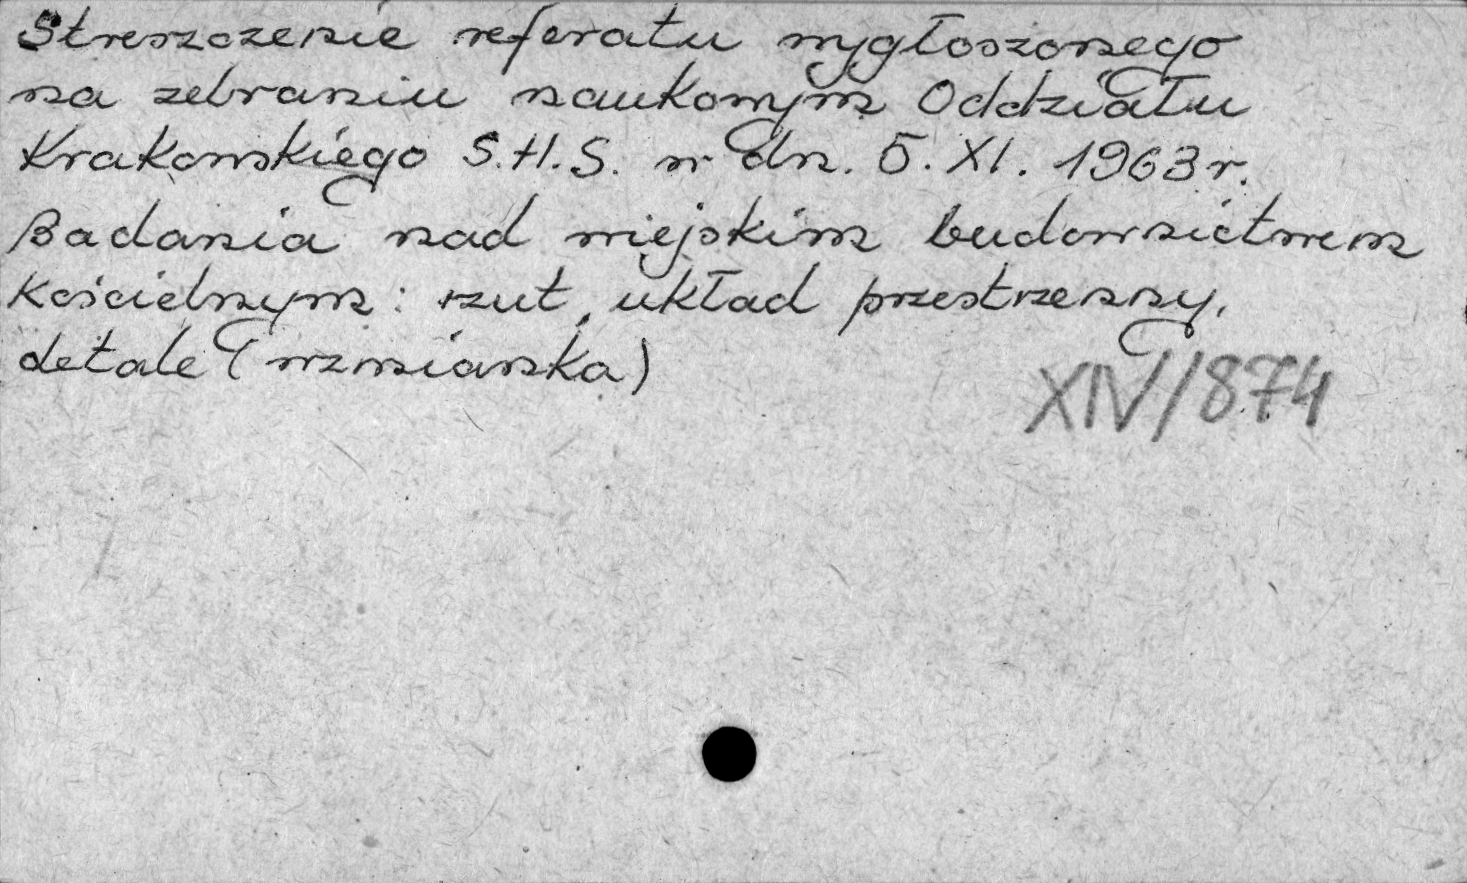 Streszczenie referatu wygłoszonego
na zebraniu naukowym Oddziału
Krakowskiego S.H.S. w dn. 5. XI. 1963 r.
Badania nad wiejskim budownictwem
kościelnym: rzut, układ przestrzenny,
detale (wzmianka)
XIV/874